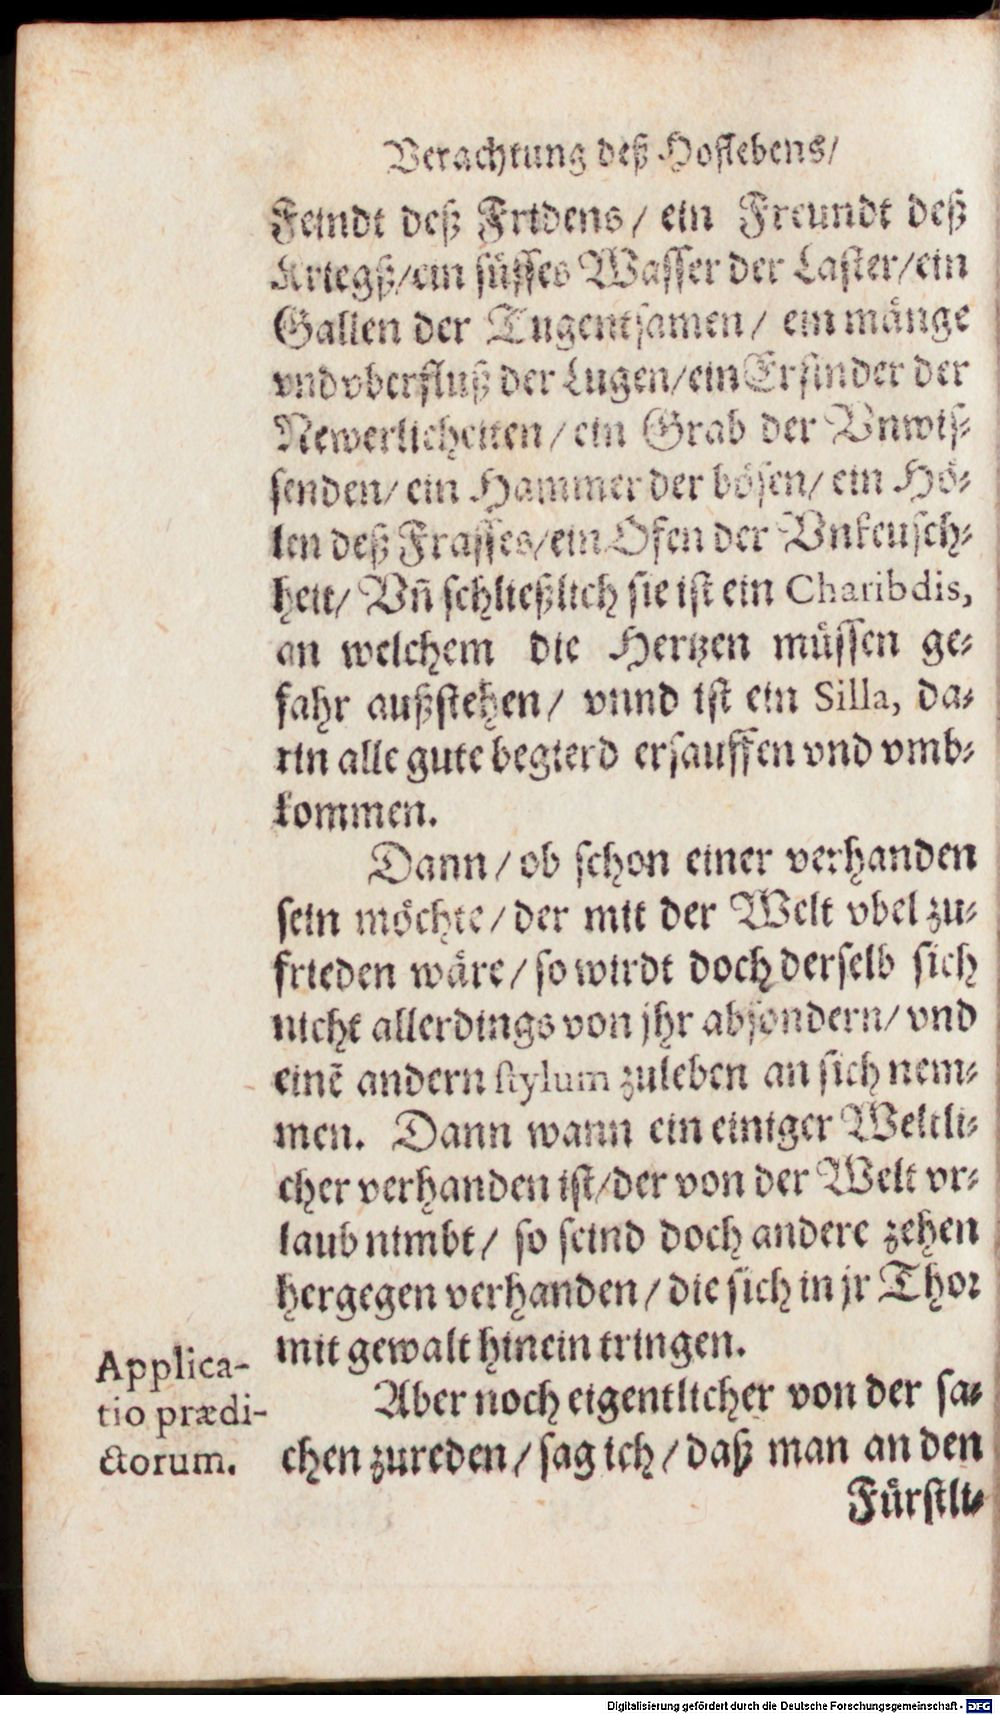 Verachtung deß Hoflebens/
Feindt deß Fridens/ ein Freundt deß
Kriegß/ein süsses Wasser der Laster/ein
Gallen der Tugentsamen/ ein mänge
vnd vberfluß der Lugen/ein Erfinder der
Newerlicheiten/ein Grab der Vnwis⸗
senden/ ein Hammer der bösen/ ein Hö⸗
len deß Frasses/ein Ofen der Vnkeusch⸗
heit/ Vñ schließlich sie ist ein Charibdis,
an welchem die Hertzen müssen ge⸗
fahr außstehen/ vnnd ist ein Silla, da⸗
rin alle gute begierd ersauffen vnd vmb⸗
kommen.
Dann/ob schon einer verhanden
sein möchte/der mit der Welt vbel zu⸗
frieden wäre/so wirdt doch derselb sich
nicht allerdings von jhr absondern/ vnd
einē andern stylum zuleben an sich nem⸗
men. Dann wann ein einiger Weltli⸗
cher verhanden ist/der von der Welt vr⸗
laub nimbt/ so seind doch andere zehen
hergegen verhanden/die sich in jr Thor
mit gewalt hinein tringen.
Aber noch eigentlicher von der sa⸗
chen zureden/sag ich/daß man an den
Fürstli⸗
Applica-
tio prædi-
ctorum.
Digitalisierung gefördert durch die Deutsche Forschungsgemeinschaft - DFG